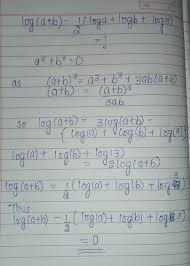 log(a+b) - 1/2 (loga + logb + log3)
= ?
a³ + b³ = 0
as (a+b)³ = a³ + b³ + 3ab(a+b)
(a+b) = (a+b)³
3ab
so log(a+b) = 3log(a+b) -
{log(a) + log(b) + log(3)}
log(a) + log(b) + log(3)
= 2log(a+b)
log(a+b) = 1/2 (log(a) + log(b) + log 3)
Thus
log(a+b) - 1/2 (log(a) + log(b) + log(3)
= 0